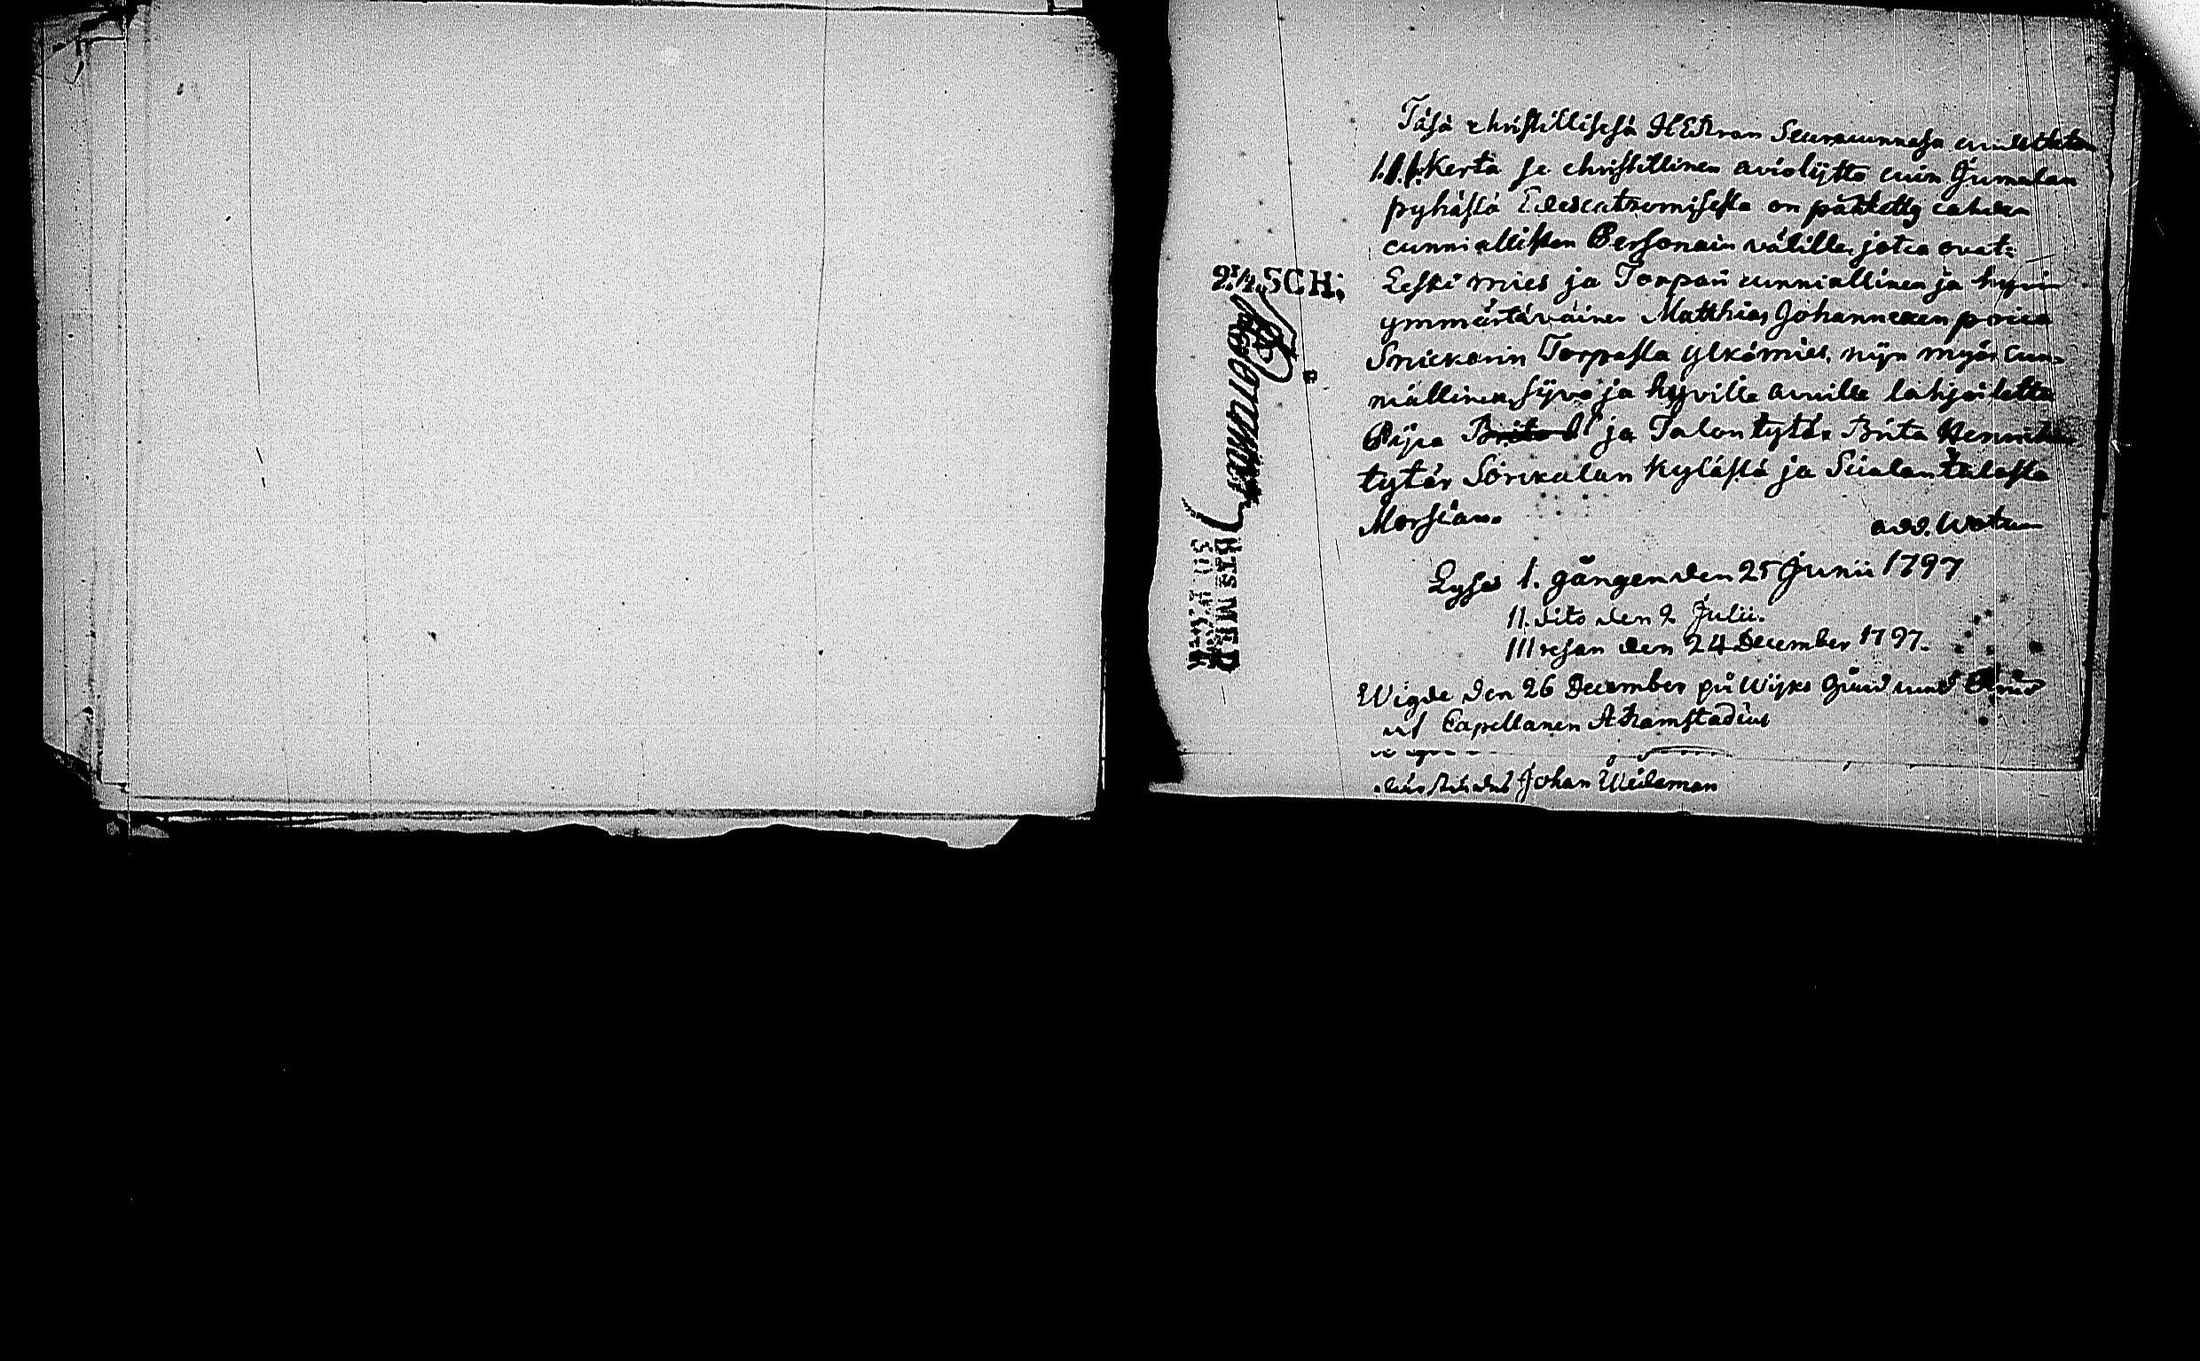 Täsä christillisesä HERran Seuracunnasa cuulutetan
I.II.Kerta se christillinen avioliitto cuin Jumalan
pyhästä Edescatzomisesta on päätetty cahden
cunniallisten Personain välille, jotca ovat:
Leski mies ja Torpari cunniallinen ja hyvin
ymmärtäväinen Matthias Johannexen poica
Snickarin Torpasta ylkämies, nijn myös cun-
niallinen, sijvo ja hyville avuille lahjoitettu
Pijca Brita ja Talon tytär Brita Henrichin
tytär Sorickalan Kylästä ja Seialan talosta
Morsian.
Lyses 1. gången den 25 Junii 1797
II. dito den 2 Julii.
III resan den 24 December 1797.
Wigde den 26 December på Wijks Gård
af Capellanen A Ramstadius
Johan Weileman
2 1/2 SCH;